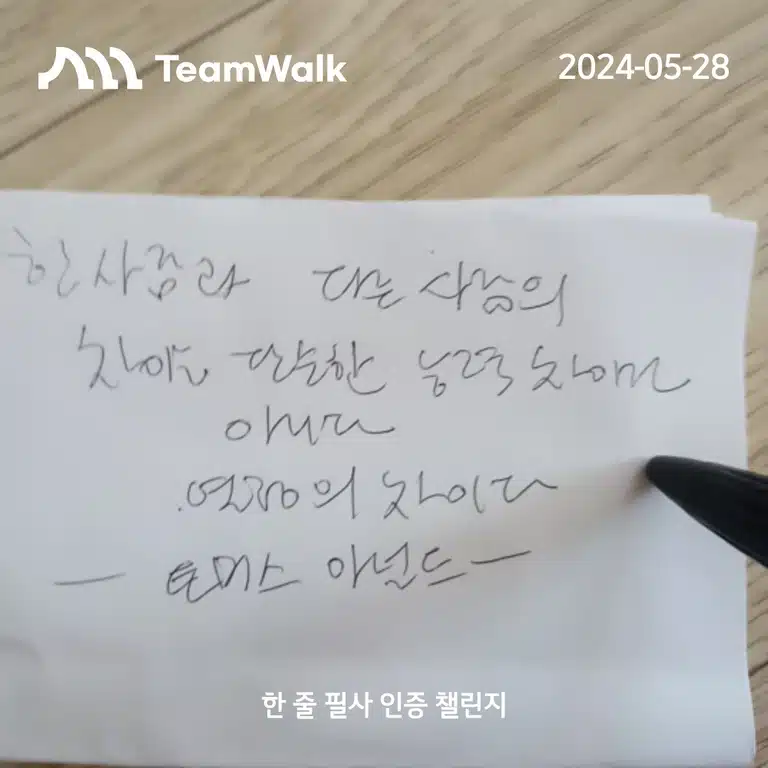 TeamWalk
2024-05-28
한 사람과 다른 사람의
차이는 단순한 능력 차이만
아니다
열정의 차이다
— 토머스 아널드 —
한 줄 필사 인증 챌린지